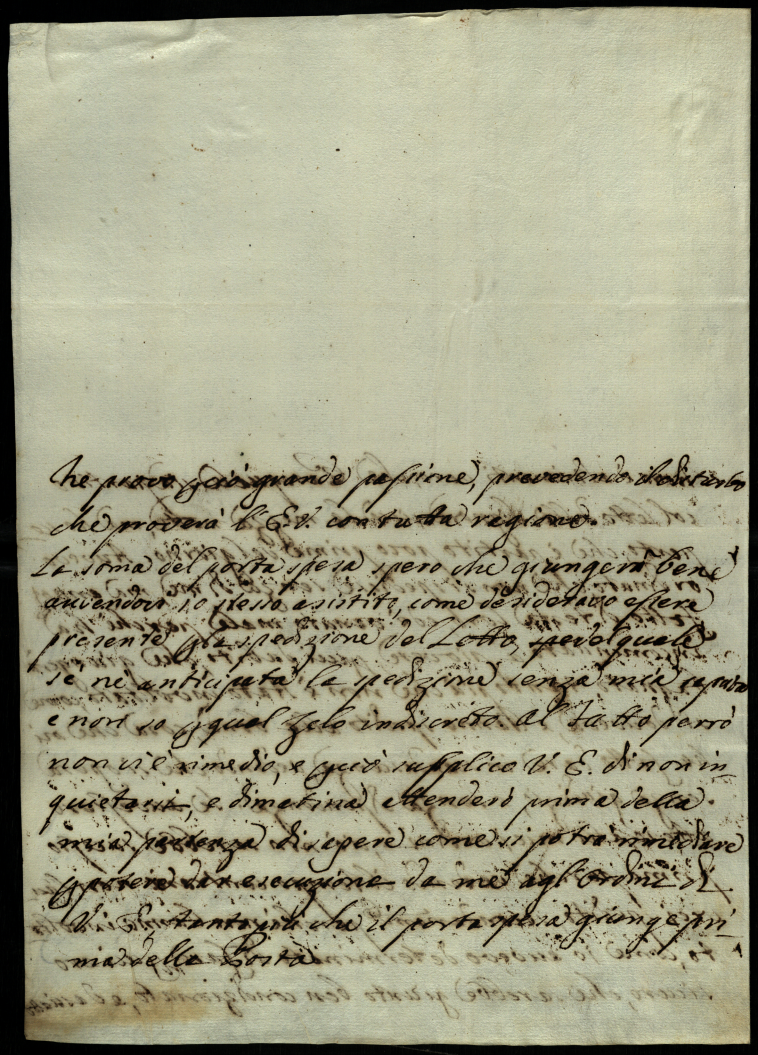 ne provo p ciò grande passione, prevedendo il disturbo
che proverà l'E.V. con tutta ragione.
La soma del porta spesa spero che giungerà bene
avvendovi io stesso assistito, come desideravo essere
presente p la spedizione del Lotto, del quale
se ne anticipata la spedizione senza mia saputa
e non so p qual zelo indiscreto. Al fatto perrò
non vi è rimedio, e p ciò supplico V. E. di non in-
quietarsi, e dimatina attenderò prima della
mia partenza di sapere come si potrà rimediare
p potere dar esecuzione da me agl'ordini di
V. E. tanto più che il porta spesa giunge pri-
ma della Posta